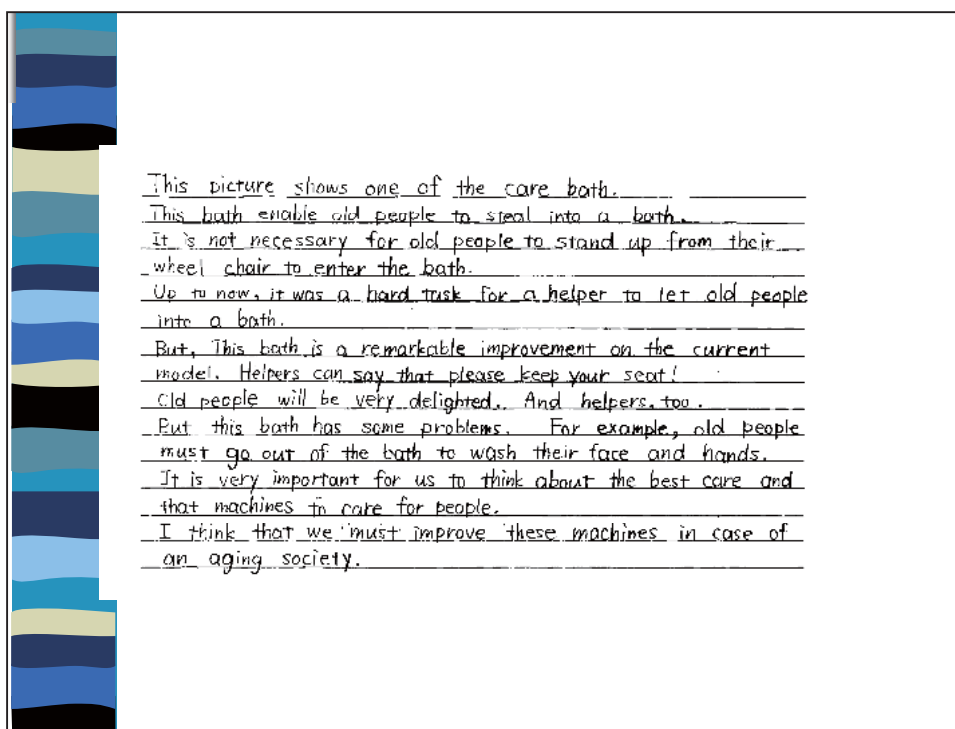 This picture shows one of the care bath.
This bath enable old people to steal into a bath.
It is not necessary for old people to stand up from their
wheel chair to enter the bath.
Up to now, it was a hard task for a helper to let old people
into a bath.
But, This bath is a remarkable improvement on the current
model. Helpers can say that please keep your seat!
Old people will be very delighted. And helpers, too.
But this bath has some problems. For example, old people
must go out of the bath to wash their face and hands.
It is very important for us to think about the best care and
that machines to care for people.
I think that we must improve these machines in case of
an aging society.